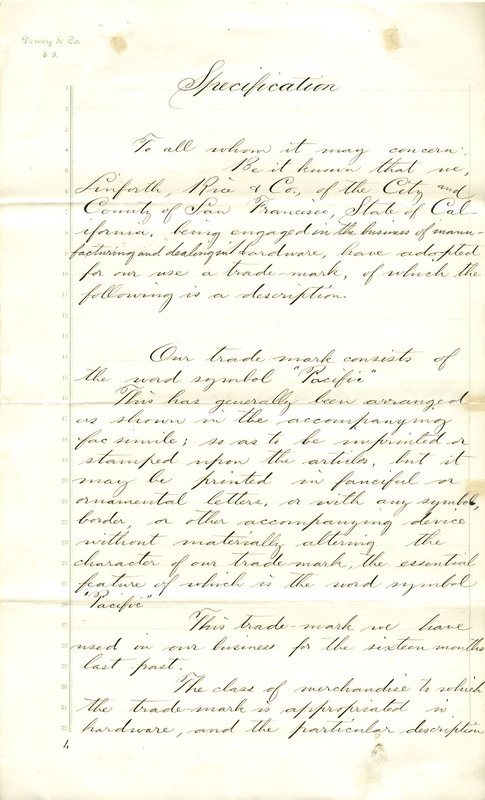 Dewey & Co.
S. F.
Specification
To all whom it may concern:
Be it known that we,
Linforth, Rice & Co., of the City and
County of San Francisco, State of Cal-
ifornia, being engaged in the business of manu-
facturing and dealing in hardware, have adopted
for our use a trade-mark, of which the
following is a description.
Our trade-mark consists of
the word symbol "Pacific"
This has generally been arranged
as shown in the accompanying
fac simile; so as to be imprinted or
stamped upon the articles, but it
may be printed in fanciful or
ornamental letters, or with any symbol,
border, or other accompanying device
without materially altering the
character of our trade-mark, the essential
feature of which is the word symbol
"Pacific"
This trade-mark we have
used in our business for the sixteen months
last past.
The class of merchandise to which
the trade-mark is appropriated is
hardware, and the particular description